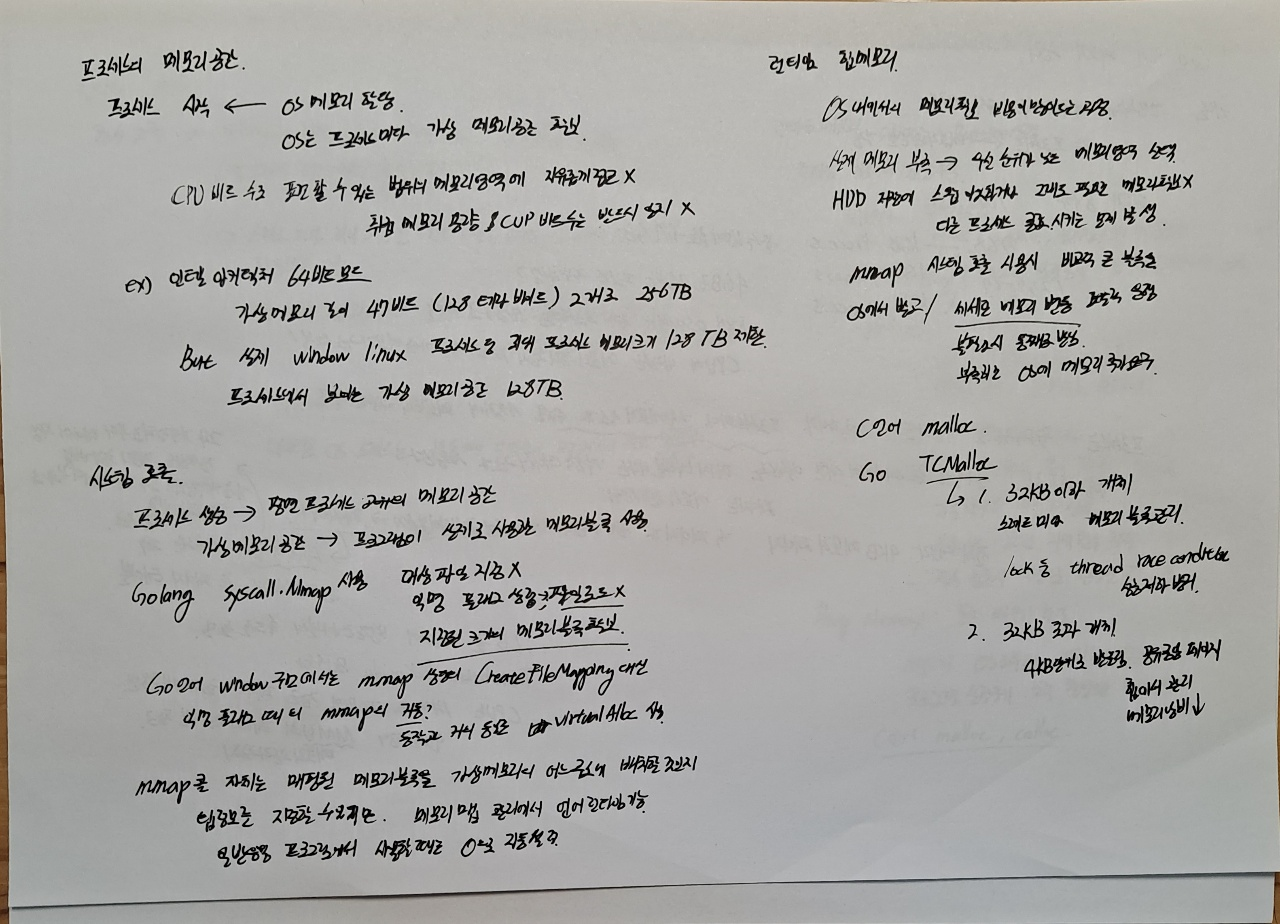 프로세스의 메모리 공간.
프로세스 시작 ← OS 메모리 할당.
OS는 프로세스마다 가상 메모리공간 확보.
CPU 비트 수로 표현할 수 있는 범위의 메모리영역에 자유롭게 접근 X
취급 메모리 용량 & CUP 비트수는 반드시 일치 X
ex) 인텔 아키텍처 64비트 모드
가상메모리 길이 47비트 (128 테라 바이트) 2개로 256TB
But 실제 window linux 프로세스당 최대 프로세스 메모리크기 128TB 제한.
프로세스에서 보이는 가상 메모리 공간 128TB.
시스템 콜.
프로세스 생성 → 평면 프로세스 고유의 메모리 공간
가상메모리 공간 → 프로그램이 실제로 사용할 메모리 블록 사용.
Golang Syscall.Mmap 사용 대상 파일 지정 X
익명 플래그 파일로드 X
지정된 크기의 메모리블록 확보.
Go 언어 window 구현에서는 mmap CreateFileMapping 대신
익명 플래그 mmap의 거동?
동작과 거의 동일한 VirtualAlloc 사용.
mmap콜 자체는 매핑된 메모리블록을 가상메모리의 어느 곳에 배치할 것인지
지정할 수 있지만. 메모리 맵 관리에서 언어 런타임 기능.
일반응용 프로그램에서 사용할 때는 0으로 자동설정.
런타임 힙메모리.
OS 내에서의 메모리확보 비용이 많이드는 과정.
실제 메모리 부족 → 우선 순위가 낮은 메모리영역 선택.
HDD 저장 그래도 부족하면 메모리확보 X
다른 프로세스 종료시키는 문제 발생.
mmap 시스템 콜을 사용시 비교적 큰 블록을
OS에서 받고/ 메모리 반동
불필요시 통째로 반환.
부족하면 OS에 메모리 추가요구.
C언어 malloc.
Go TCMalloc
↳ 1. 32KB이하 객체
스레드 마다 메모리 블록관리.
lock 등 thread race condition
성능저하 방지
2. 32KB 초과 객체
4KB단위로 반올림. 공유되는 페이지
힙에서 관리
메모리낭비↓